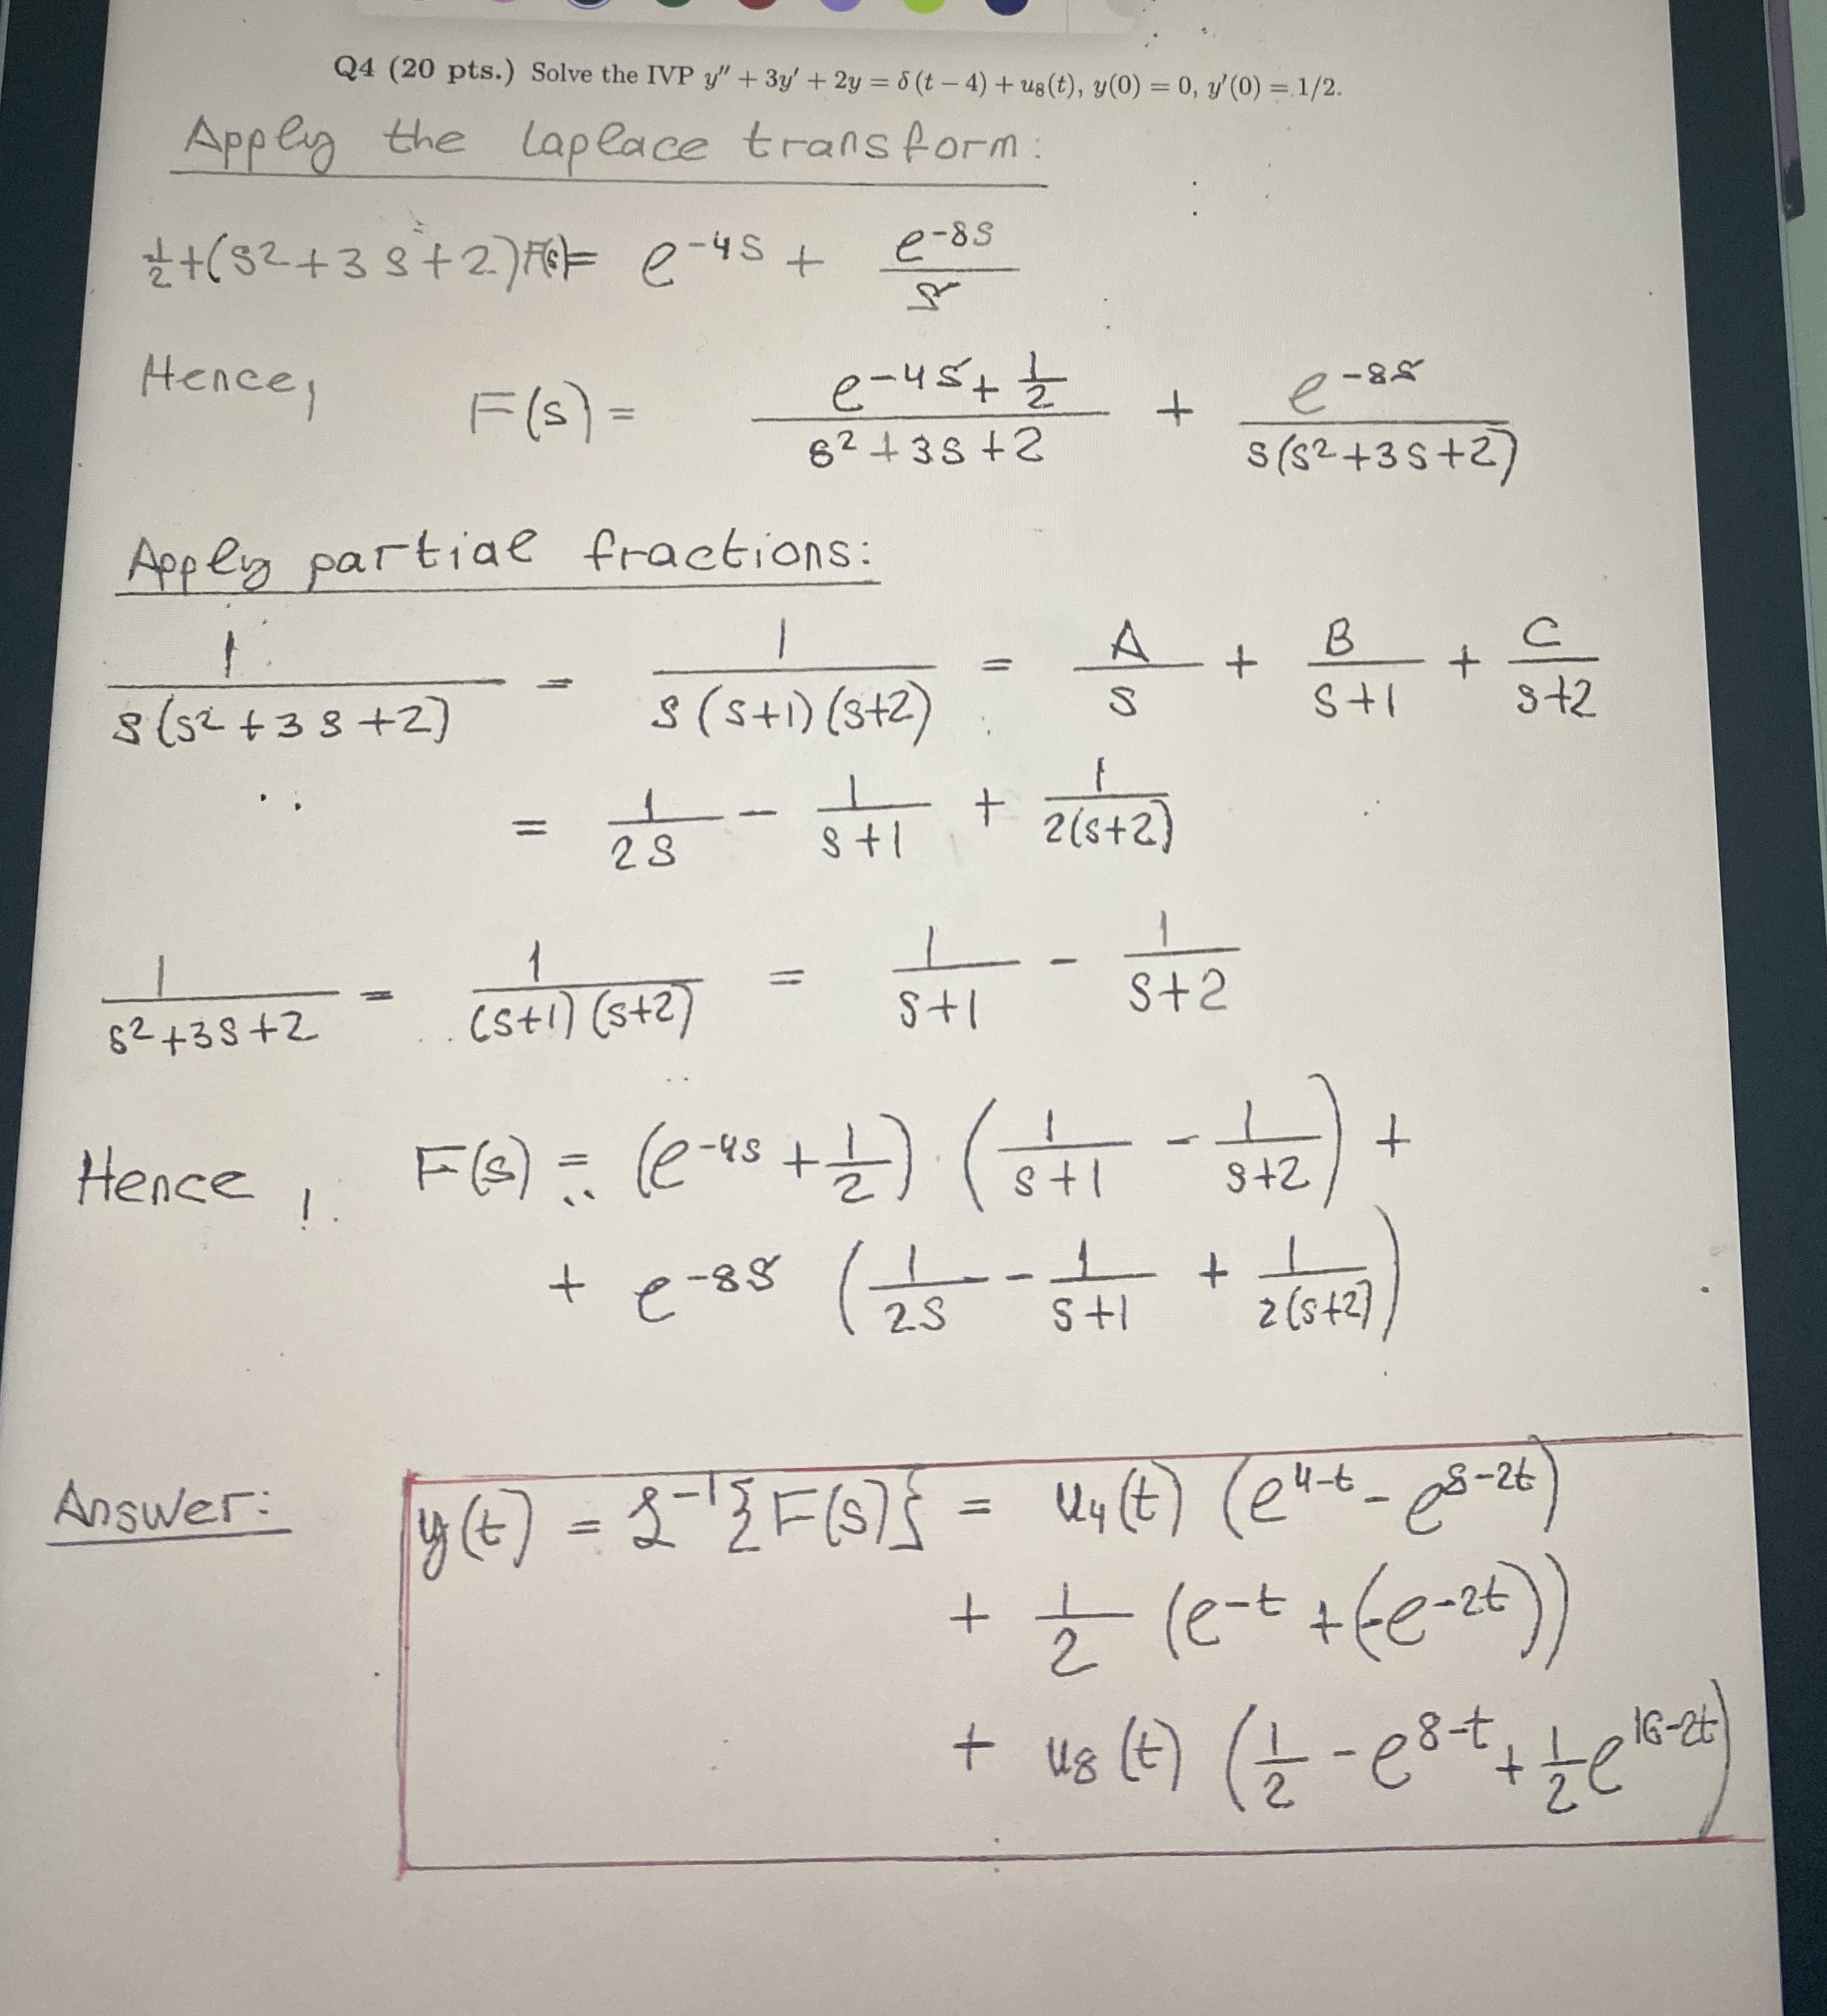 Q4 (20 pts.) Solve the IVP y'' + 3y' + 2y = δ(t − 4) + u₈(t), y(0) = 0, y'(0) = 1/2.
Apply the Laplace transform:
-1/2 + (s² + 3s + 2)F(s) = e^{-4s} + e^{-8s}/s
Hence, F(s) = (e^{-4s} + 1/2)/(s² + 3s + 2) + e^{-8s}/(s(s² + 3s + 2))
Apply partial fractions:
1/(s(s² + 3s + 2)) = 1/(s(s+1)(s+2)) = A/s + B/(s+1) + C/(s+2)
= 1/(2s) − 1/(s+1) + 1/(2(s+2))
1/(s² + 3s + 2) = 1/((s+1)(s+2)) = 1/(s+1) − 1/(s+2)
Hence, F(s) = (e^{-4s} + 1/2) · (1/(s+1) − 1/(s+2)) +
+ e^{-8s} (1/(2s) − 1/(s+1) + 1/(2(s+2)))
Answer: y(t) = ℒ^{-1}{F(s)} = u₄(t) (e^{4-t} − e^{8-2t})
+ 1/2 (e^{-t} + (-e^{-2t}))
+ u₈(t) (1/2 − e^{8-t} + 1/2 e^{16-2t})